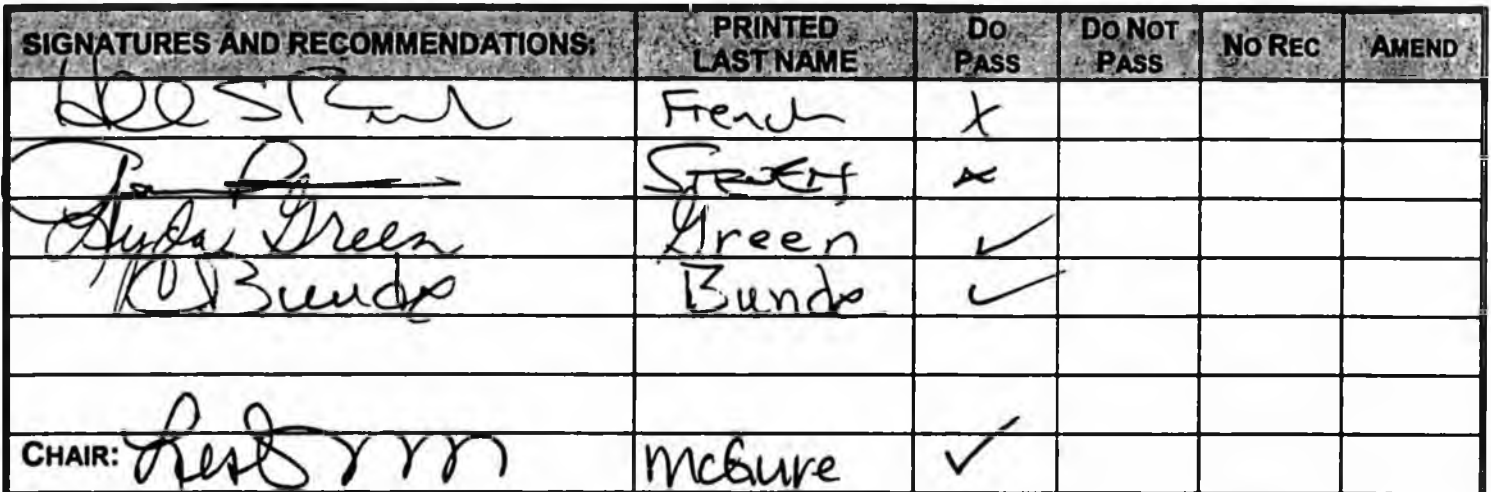 SIGNATURES AND RECOMMENDATIONS: PRINTED LAST NAME DO PASS DO NOT PASS NO REC AMEND
French X
x
Lyda Green Green ✓
C Bunde Bunde ✓
CHAIR: McGuire ✓